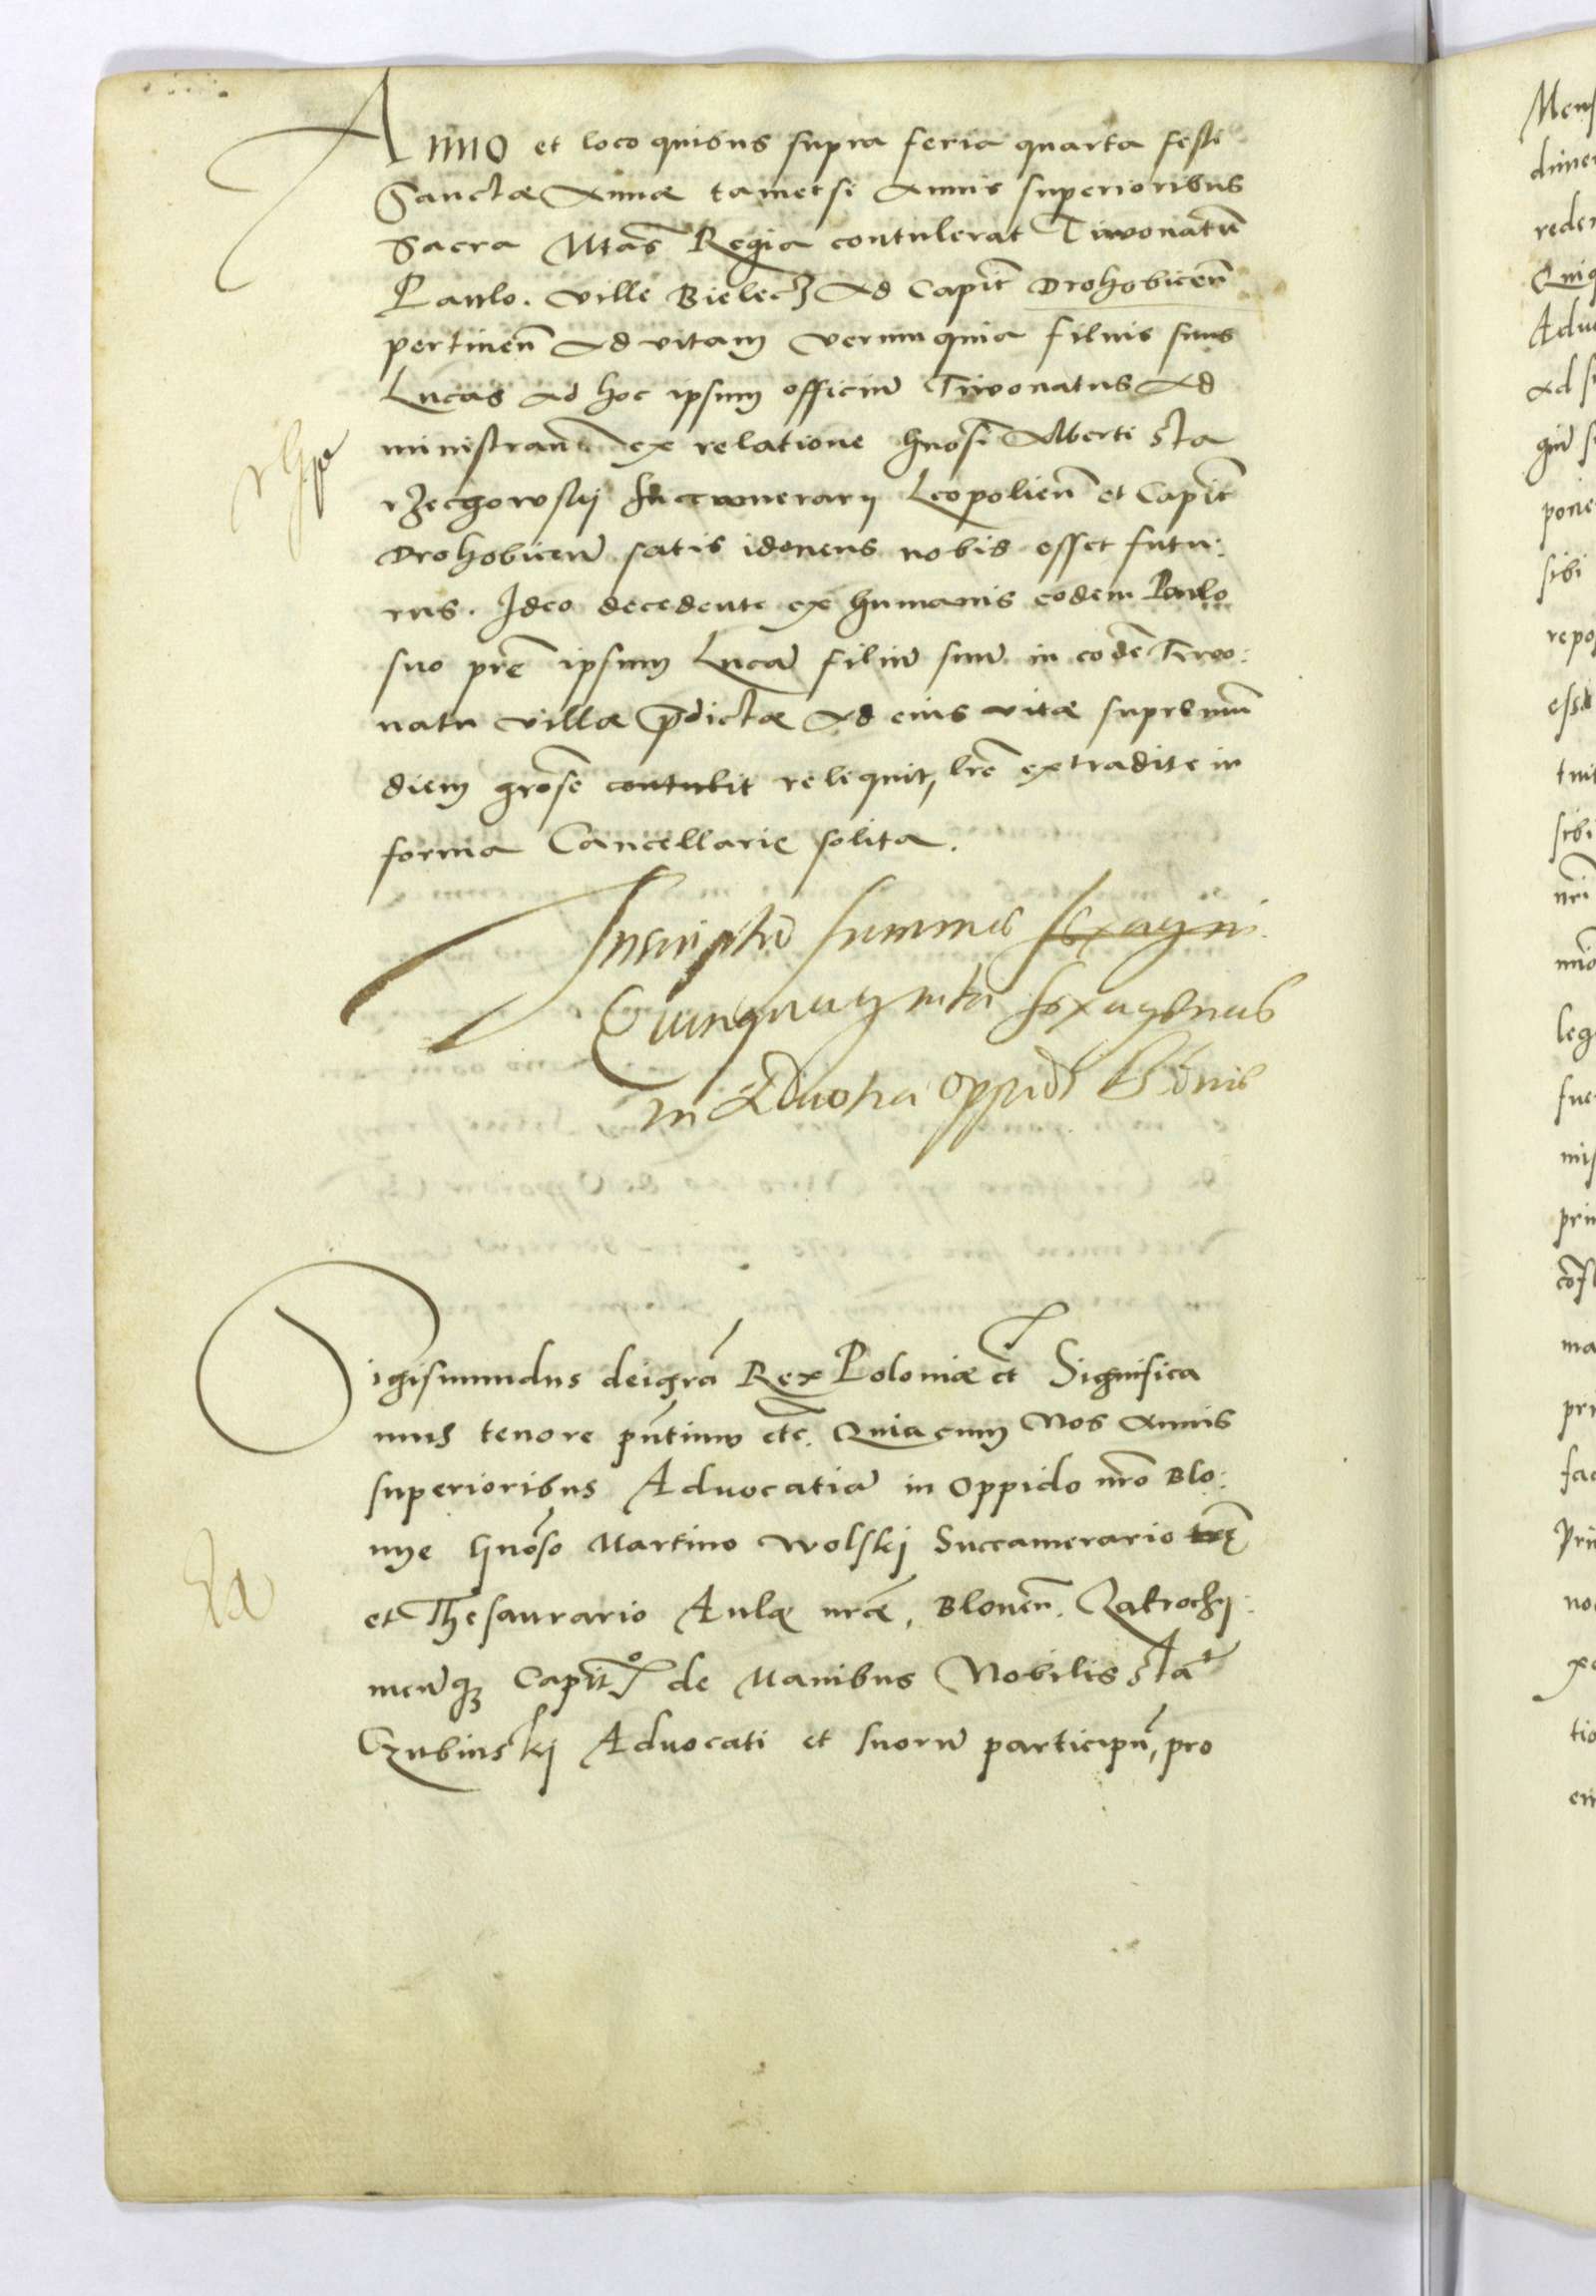 Anno et loco quibus supra feria quarta festi
Sanctæ Annæ tametsi Annis superioribus
Sacra Mtas Regia contulerat Tiwonatū
Paulo. ville Bielecz Ad Capit Drohobiceñ
pertineñ Ad vitam verum quia filius suus
Lucas Ad hoc ipsum officiū Tiwonatus Ad
ministranđ ex relatione Gnosi Alberti Sta
rzechowskij Succamerarij Leopolieñ et Capit
Drohobiceñ satis idoneus nobis esset futu:
rus. Ideo decedente ex humanis eodem Paulo
suo pre ipsum Lucā filiū suū in eodē Tiwo:
natu villæ p̄dictæ Ad eius vitæ supremū
diem grose contulit reliquit, lre extradite in
forma Cancellarie solita.
Inscriptio summæ sexageni
Quinquaginta sexagenas
in Advotia oppidi Blonie
Sigismundus dei gra Rex Poloniæ etc Significa
mus tenore pntium etc. Quia cum Nos Annis
superioribus Advocatiā in Oppido nro Blo:
nye Gnoso Martino Wolskj Succamerario
et Thesaurario Aulæ nræ, Bloneñ. Zakrochj:
meñqz Capito de Manibus Nobilis Sta
Czubinskj Advocati et suorū participū, pro